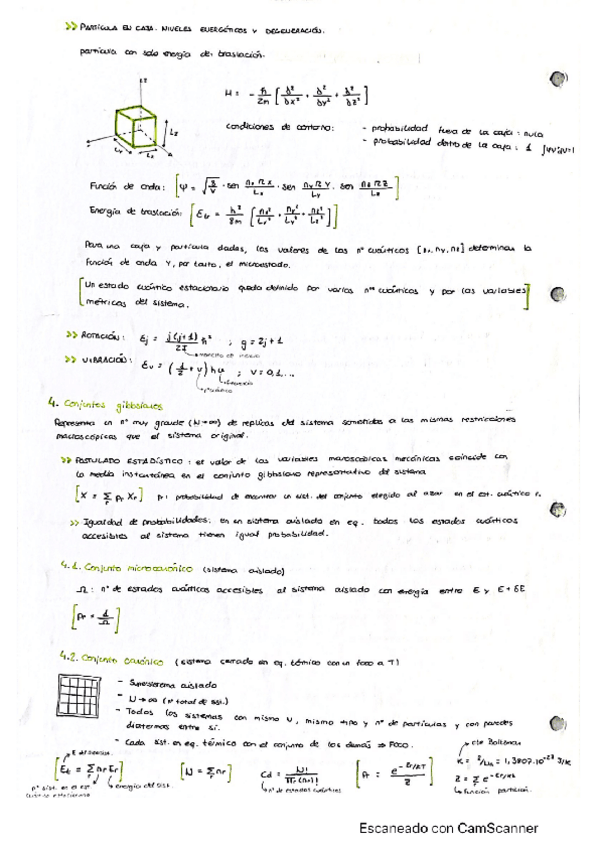 >> PARTÍCULA EN CAJA. NIVELES ENERGÉTICOS Y DEGENERACIÓN.
partícula con solo energía de traslación.
H = - ħ/2m [ ∂²/∂x² + ∂²/∂y² + ∂²/∂z² ]
Condiciones de contorno: - probabilidad fuera de la caja: nula
- probabilidad dentro de la caja: 1
Función de onda: [ Ψ = √8/V · sen nx π x / Lx · sen ny π y / Ly · sen nz π z / Lz ]
Energía de traslación: [ Etr = h²/8m [ nx²/Lx² + ny²/Ly² + nz²/Lz² ] ]
Para una caja y partícula dadas, los valores de los nº cuánticos [nx, ny, nz] determinan la
función de onda y, por tanto, el microestado.
[ Un estado cuántico estacionario queda definido por varios nºs cuánticos y por las variables
métricas del sistema. ]
>> ROTACIÓN: Ej = j(j+1)/2I ħ² ; g = 2j+1
momento de inercia
>> VIBRACIÓN: Ev = (1/2 + v) hν ; v = 0,1,...
4. Conjuntos gibbsianos
Representa un nº muy grande (N→∞) de réplicas del sistema sometidas a las mismas restricciones
macroscópicas que el sistema original.
>> POSTULADO ESTADÍSTICO: el valor de las variables macroscópicas mecánicas coincide con
la media instantánea en el conjunto gibbsiano representativo del sistema
[ X = Σr Pr Xr ] Pr: probabilidad de encontrar un sist. del conjunto elegido al azar en el est. cuántico r.
>> Igualdad de probabilidades: en un sistema aislado en eq. todos los estados cuánticos
accesibles al sistema tienen igual probabilidad.
4.1. Conjunto microcanónico (sistema aislado)
Ω: nº de estados cuánticos accesibles al sistema aislado con energía entre E y E+δE
[ Pr = 1/Ω ]
4.2. Conjunto canónico (sistema cerrado en eq. térmico con un foco a T)
- Supersistema aislado
- N→∞ (nº total de sist.)
- Todos los sistemas con mismo V, mismo tipo y nº de partículas y con paredes
diatermas entre sí.
- Cada sist. en eq. térmico con el conjunto de los demás ⇒ FOCO.
[ Et = Σr nr Er ] [ N = Σr nr ] Cd = N!/Πr(nr!) [ Pr = e^-Er/kT / Z ]
energía del sist.
nº de estados cuánticos
cte Boltzmann
Z = Σr e^-Er/kT
función partición.
Escaneado con CamScanner